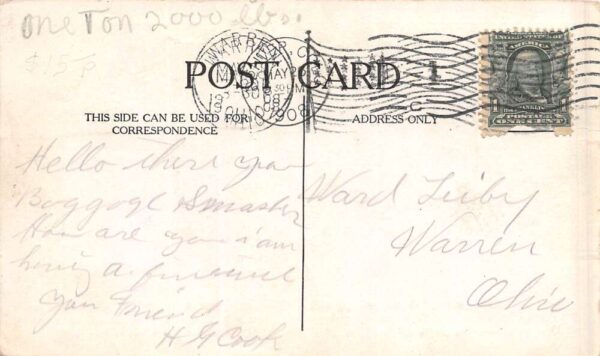 One Ton 2000 lbs.
$15 p
WARREN, O.
MAY
30 PM
1908
WARREN
OHIO
1908
POST CARD
THIS SIDE CAN BE USED FOR
CORRESPONDENCE
ADDRESS ONLY
FRANKLIN
POSTAGE
ONE CENT
Hello there you
Baggage Smasher
How are you i am
having a fine time
your Friend
H G Cook
Ward
Warren
Ohio